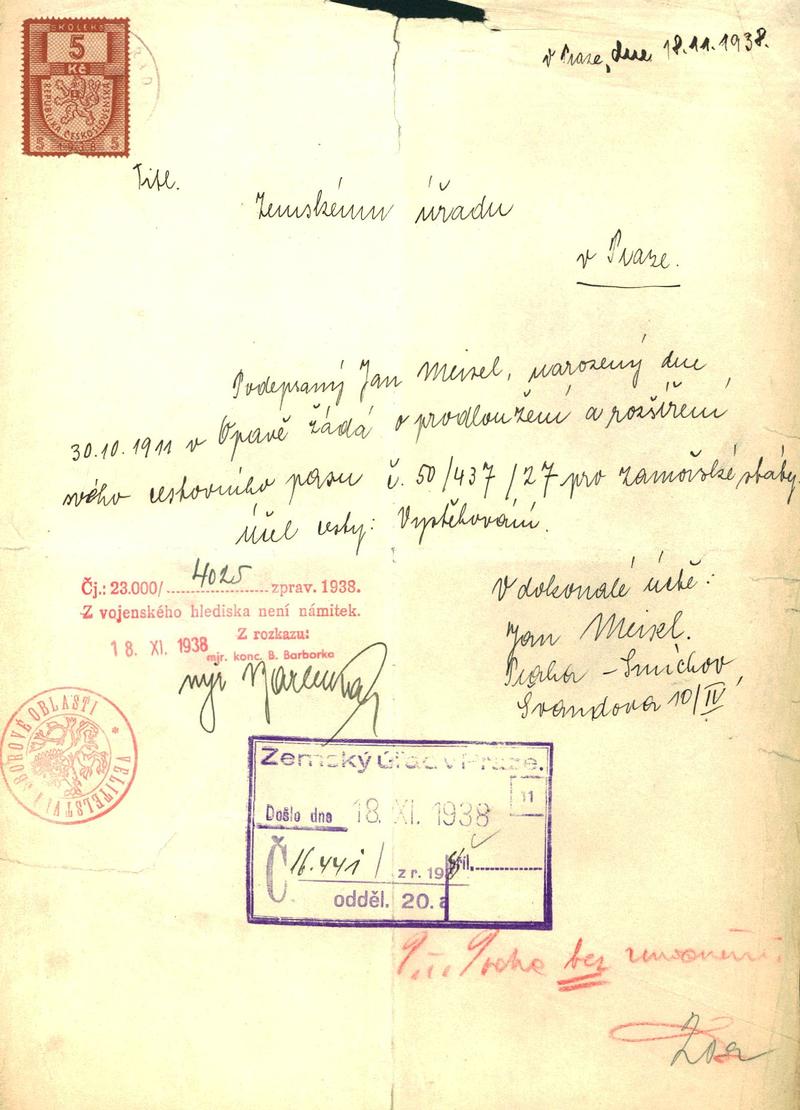 KOLEK
5
Kč
REPUBLIKA ČESKOSLOVENSKÁ
5 1938 5
v Praze, dne 18.11.1938.
Titl.
Zemskému úřadu
v Praze.
Podepsaný Jan Meisel, narozený dne
30.10.1911 v Opavě žádá o prodloužení a rozšíření
svého cestovního pasu č. 50/437/27 pro zámořské státy.
Účel cesty: Vystěhování.
V dokonalé úctě:
Jan Meisel.
Praha - Smíchov,
Švandova 10/IV
Čj.: 23.000/ 4025 zprav. 1938.
Z vojenského hlediska není námitek.
Z rozkazu:
18. XI. 1938
mjr. konc. B. Barborka
VELITELSTVÍ SBOROVÉ OBLASTI
Zemský úřad v Praze.
11
Došlo dne 18. XI. 1938
Č 16.441 / z r. 198 příl.
odděl. 20. a
bez